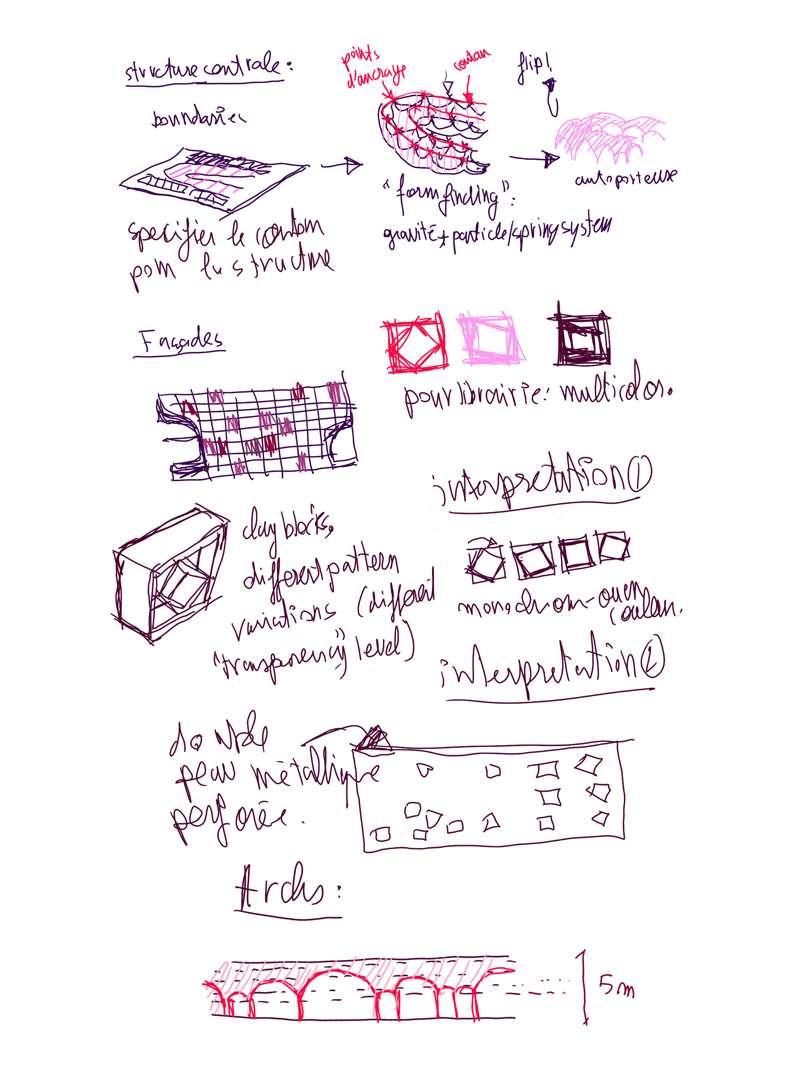 structure centrale:
points
d'ancrage
flip!
boundaries
"form finding":
gravité + particle/spring system
autoporteuse
specifier le
structure
Façades
pour librairie: multicolor.
interpretation ①
clay blocks,
different pattern
variations (different
"transparency" level)
monochrom
interpretation ②
double
peau métallique
perforée.
Archs:
5m